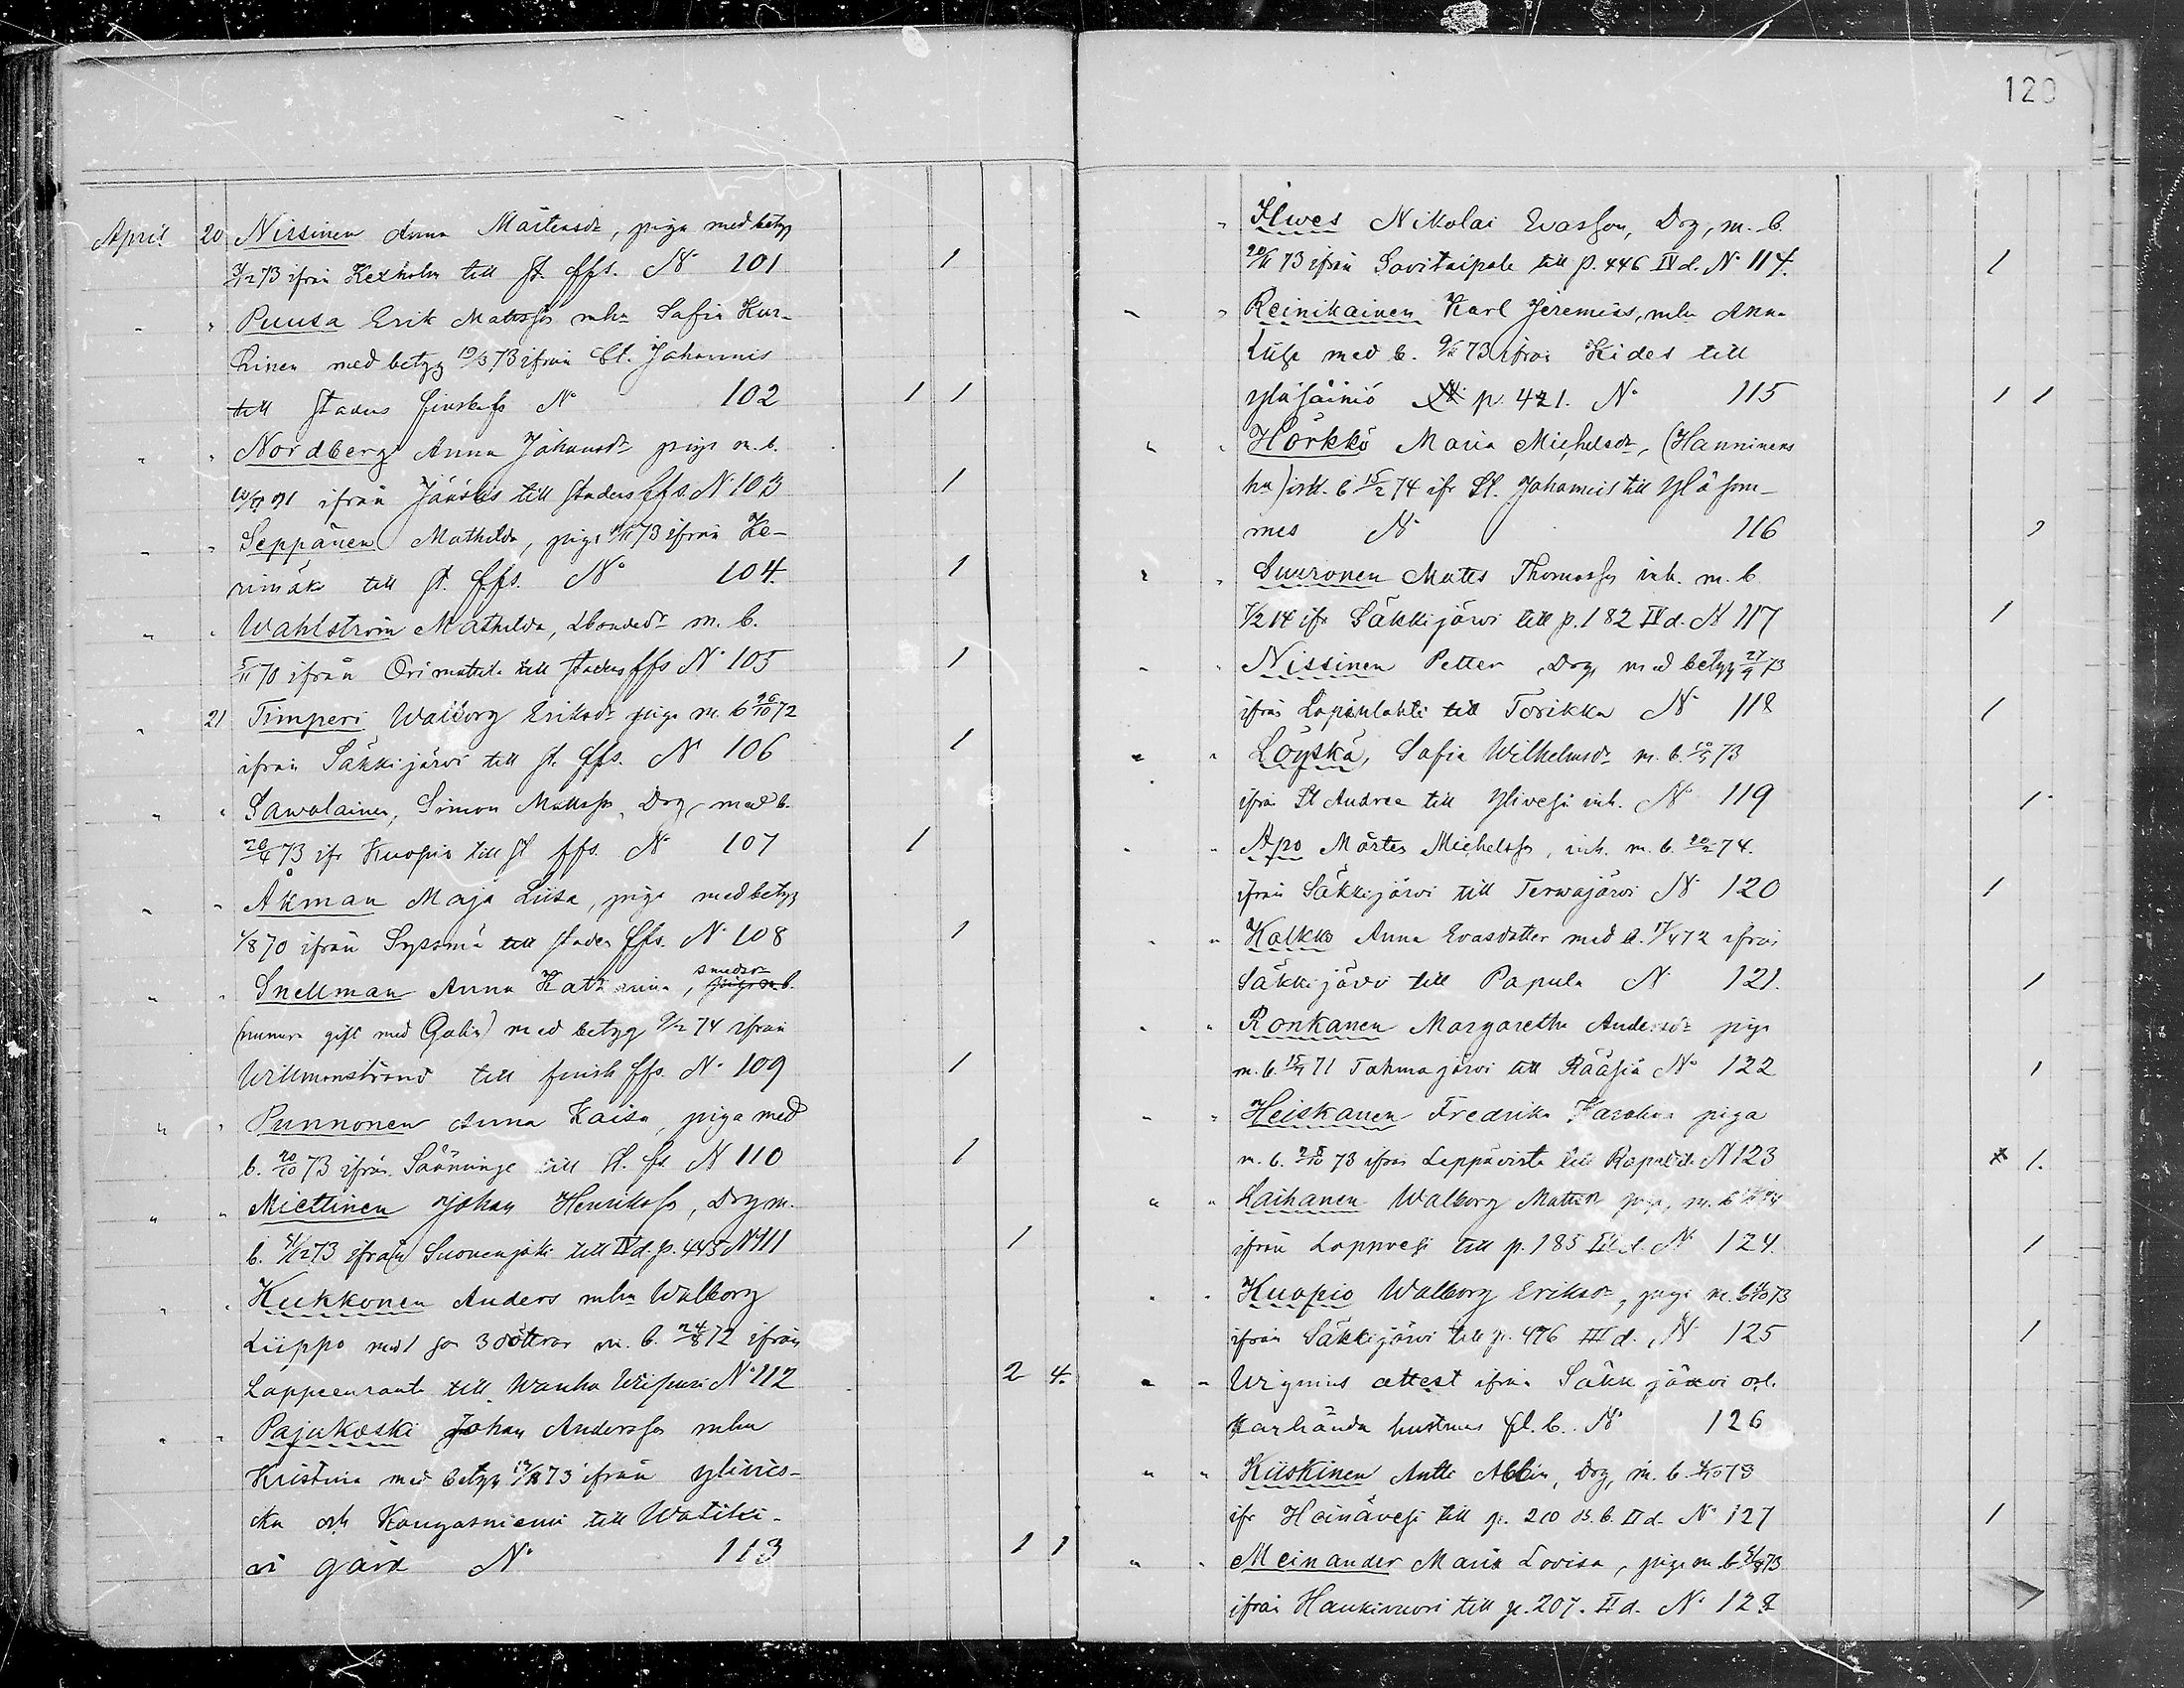 120
April 20 Nissinen Anna Mårtensdr, piga med betyg
3/12 73 ifrån Kexholm till St. ffs. No 101 1
" " Puusa Erik Matsson mhu Sofia Kur-
kinen med betyg 19/3 73 ifrån St. Johannis
till stadens finska fs No 102 1 1
" " Nordberg Anna Johansdr piga m. b.
ifrån Jääskis till stadens ffs. No 103 1
" " Seppänen Mathilda, piga 73 ifrån Ke-
rimäki till St. ffs. No 104. 1
" " Wahlström Mathilda, m. b.
5/11 70 ifrån Orimattila till stadens ffs No 105 1
" 21 Timperi Walborg Eriksdr piga m. b 26/10 72
ifrån Säkkijärvi till St. ffs. No 106 1
" " Sawolainen, Simon Mattsson, Drg, med b.
26/4 73 ifr Kuopio till St ffs. No 107 1
" " Åkman Maja Liisa, piga med betyg
1/8 70 ifrån Sysmä till staden ffs. No 108 1
" " Snellman Anna Katarina, smedsdr piga m b.
(numera gift med Golin) med betyg 9/2 74 ifrån
Willmanstrand till finsk ffs. No 109 1
" " Punnonen Anna Kaisa, piga med
b. 20/10 73 ifrån Sääminge till St. fs. No 110 1
" " Miettinen Johan Henriksson, Drg m.
b. 31/12 73 ifrån Suonenjoki till IV d. p. 445 No 111 1
" " Kukkonen Anders mhu Walborg
Liippo med 1 son 3 döttrar m. b. 24/8 72 ifrån
Lappeenranta till Wanha Wiipuri No 112 2 4.
" " Pajukoski Johan Andersson mhu
Kristina med betyg 73 ifrån ylivis-
ka och Kangasniemi till Watiki-
vi gård No 113 1 1
" Ilwes Nikolai Evasson, Drg, m. b.
20/11 73 ifrån Savitaipale till p. 446 IV d. No 114. 1
" " Reinikainen Karl Jeremias, mhu Anna
Luise med b. 73 ifrån Kides till
Yläsäiniö p. 421. No 115 1 1
" " Hörkkö Maria Michelsdr, (Hanninens
hu) inh. b 15/2 74 ifr St. Johannis till Ylä som-
mes No 116 1
" " Suuronen Mats Thomasson inh. m. b
1/2 74 ifr Säkkijärvi till p. 182 IV d. No 117 1
" " Nissinen Petter, Drg, med betyg 27/9 73
ifrån Lapinlahti till Torikka No 118 1
" " Löyskä, Sofia Wilhelmsdr m. b. 73
ifrån St Andree till Ylivesi inh. No 119 1
" " Apo Mårten Michelsson, inh. m. b. 20/2 74.
ifrån Säkkijärvi till Terwajärvi No 120 1
" " Kalkko Anna Evasdotter med b. 17/4 72 ifrån
Säkkijärvi till Papula No 121. 1
" " Ronkanen Margaretha Andersdr piga
m. b. 71 Tohmajärvi till Rääsiä No 122 1
" " Heiskanen Fredrika Karolina piga
m. b. 73 ifrån Leppävirta till No 123 1.
" " Laihanen Walborg Matsdr piga, m. b
ifrån Lappvesi till p. 185 No 124. 1
" " Kuopio Walborg Eriksdr, piga m. b 73
ifrån Säkkijärvi till p. 476 III d. No 125 1
" " attest ifrån Säkkijärvi
hustrus fl. b. No 126
" " Kiiskinen Antti Albin, Drg, m. b. 73
ifr Heinävesi till p. 210 B. b. II d. No 127 1
" " Meinander Maria Lovisa, piga m b 73
ifrån Haukivuori till p. 207. II d. No 128